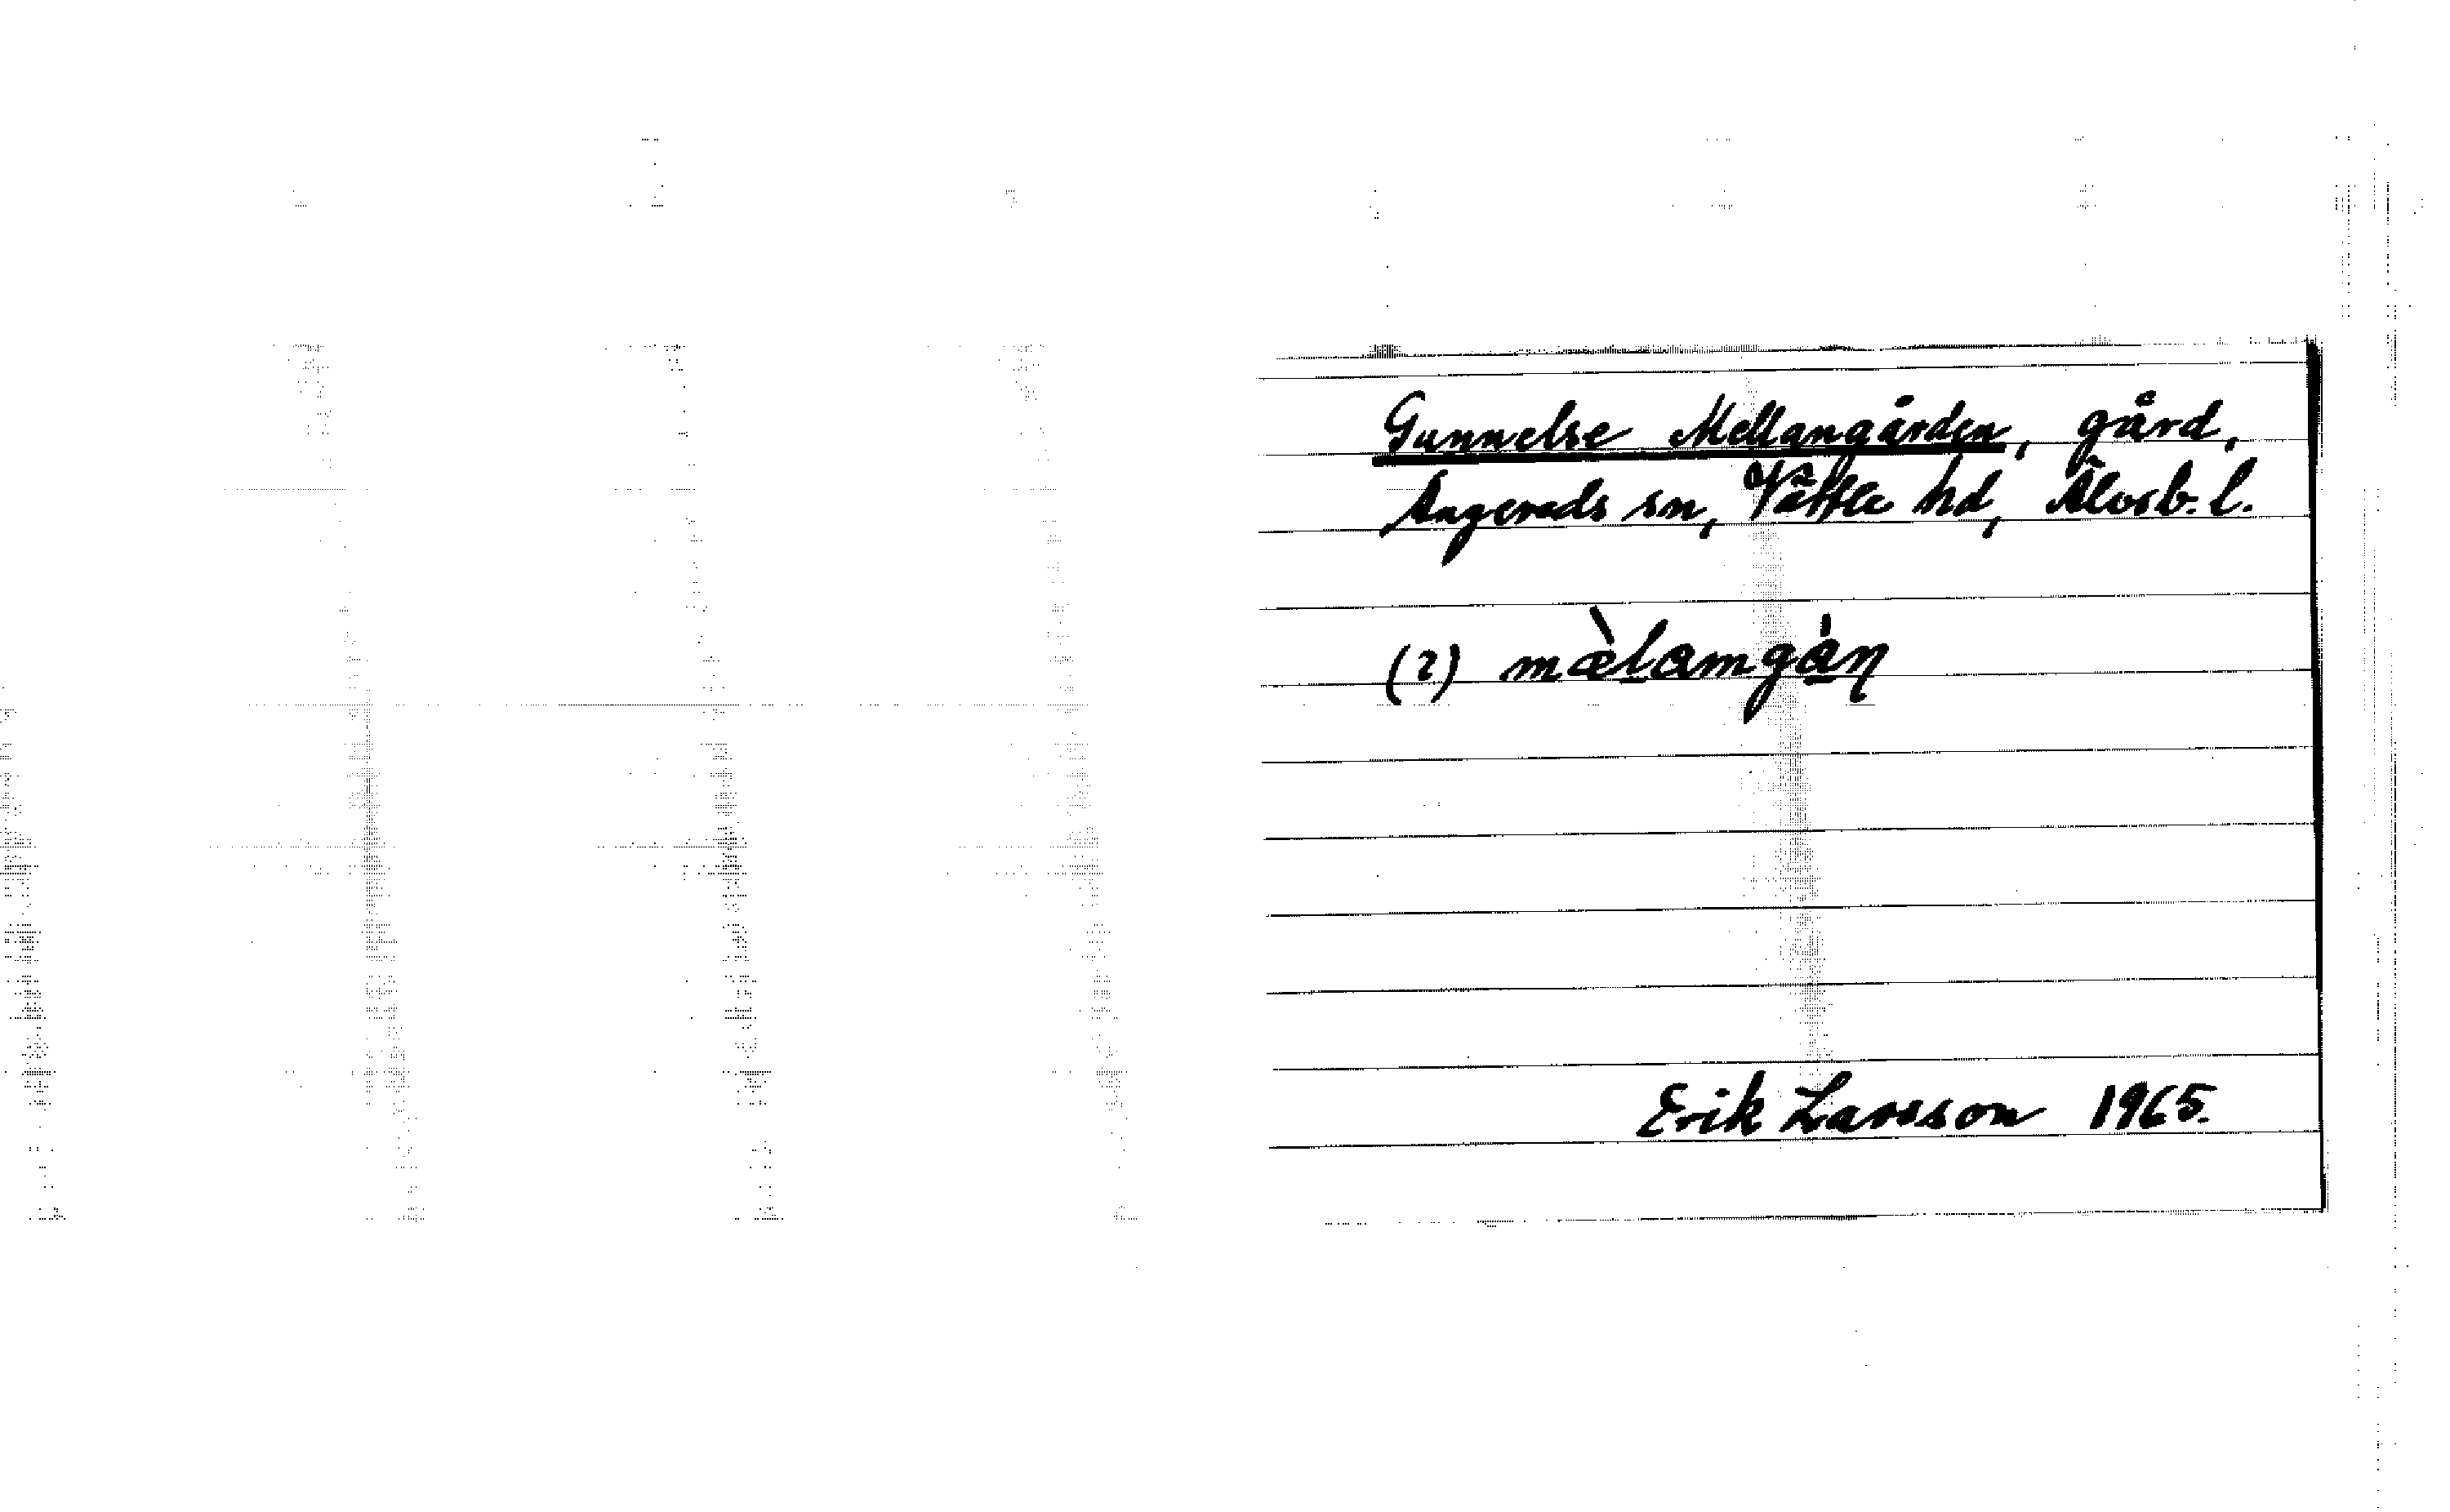 Gunnelse Mellangården, gård,
Angereds sn, Vättle hd, Älvsb. l.
(2) mæ̀lamgån
Erik Larsson 1965.